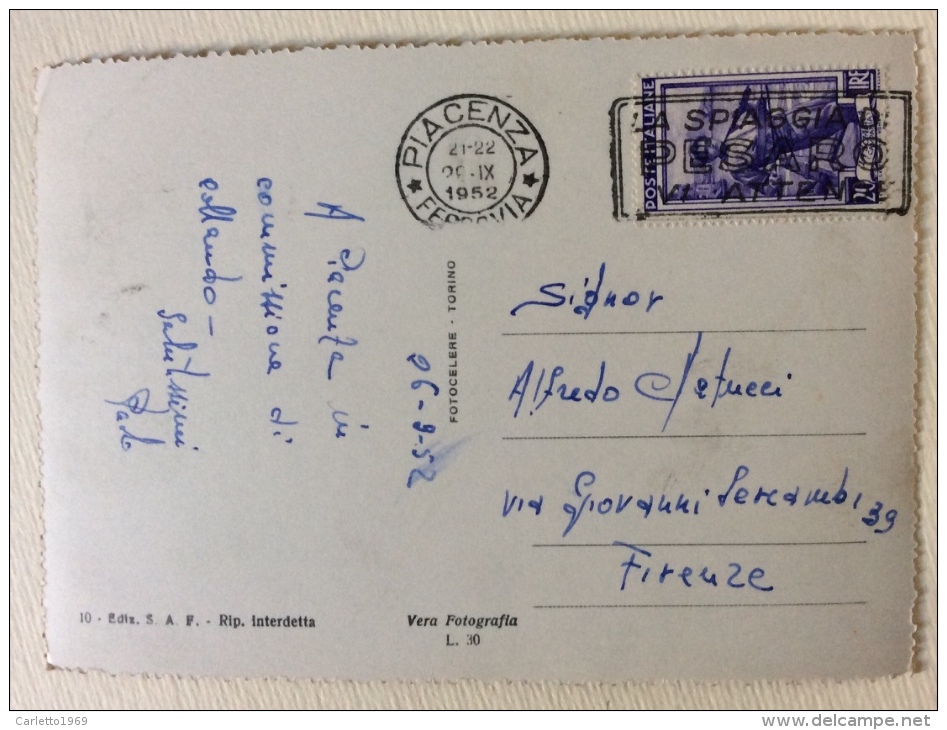 PIACENZA
21-22
IX
1952
FERROVIA
POSTE ITALIANE
LIRE
20
LA SPIAGGIA DI
PESARO
VI ATTENDE
A Piacenza in
commissione di
collaudo -
Salutissimi
Paolo
26-9-52
FOTOCELERE - TORINO
Signor
Alfredo
via Giovanni Sercambi 39
Firenze
10 - Ediz. S. A. F. - Rip. interdetta
Vera Fotografia
L. 30
Carletto1969
delcampe.net